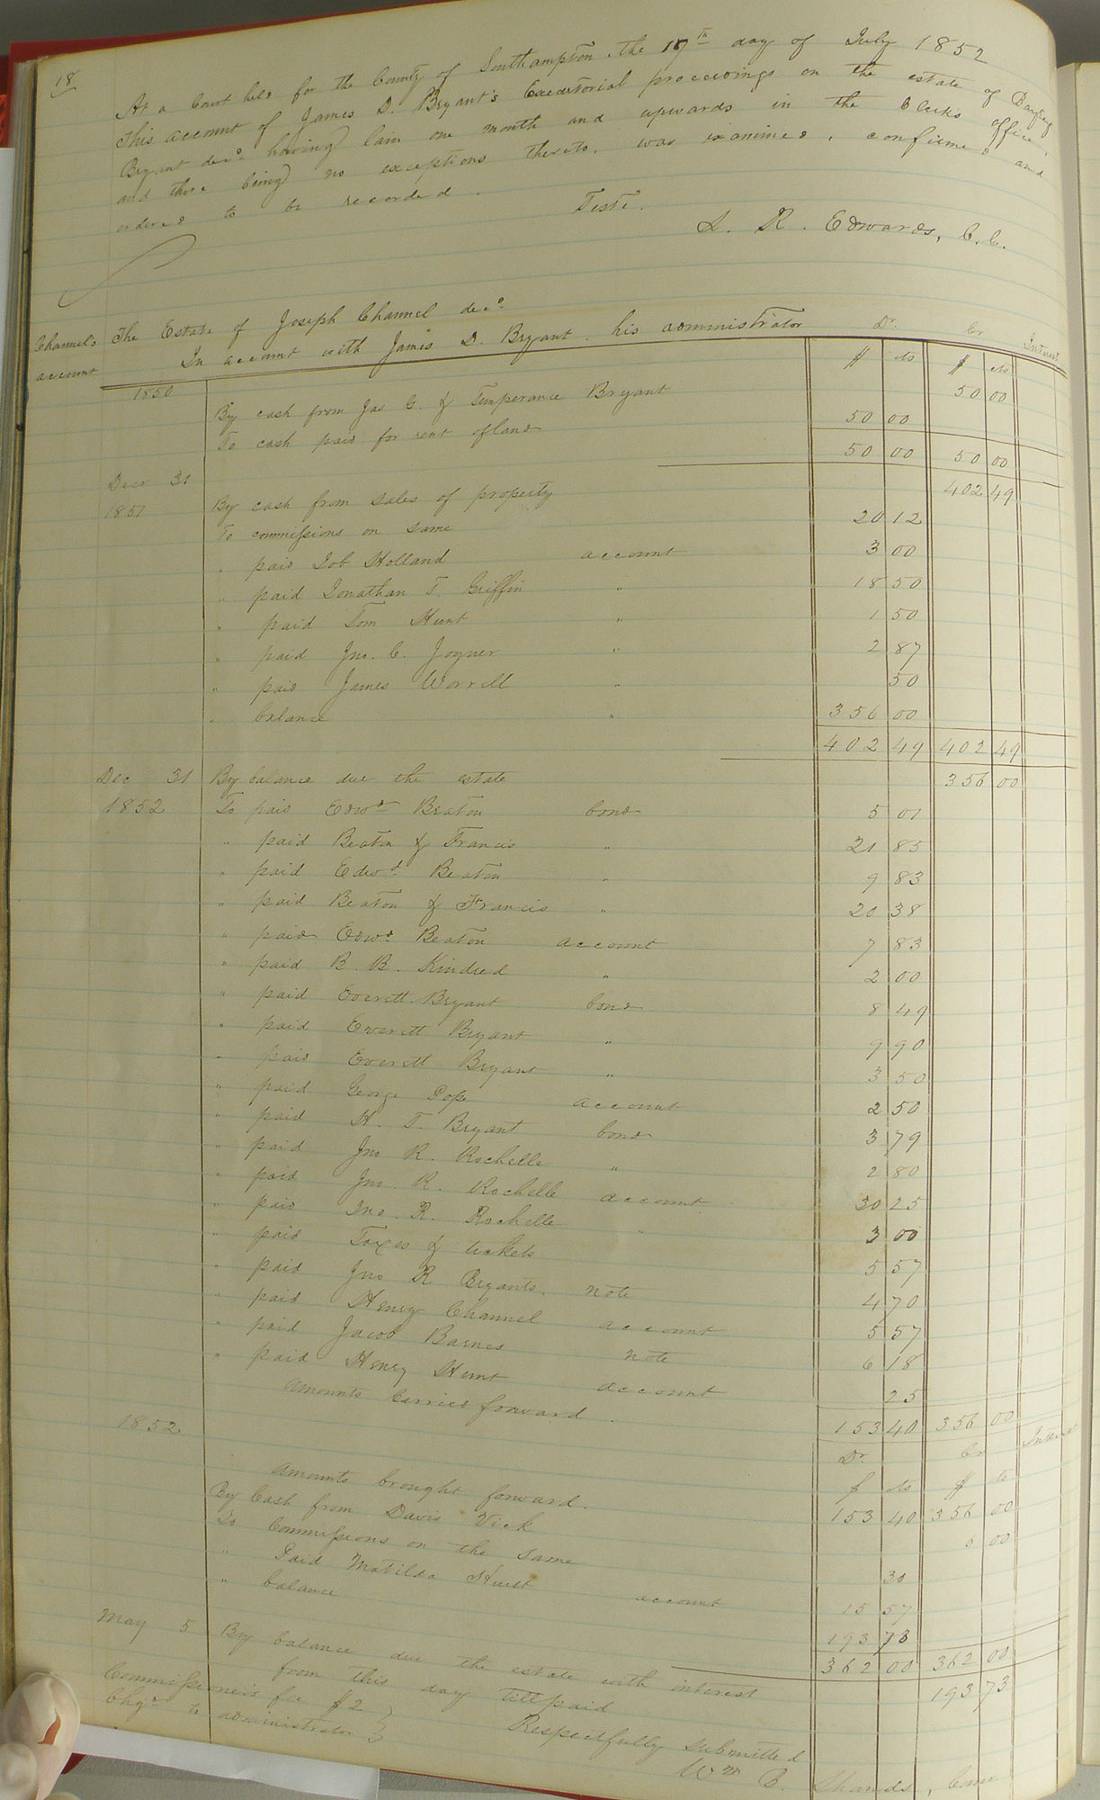 18
At a Court held for the County of Southampton the 19th day of July 1852
This account of James D. Bryant's Executorial proceedings on the estate of
Bryant decd having lain one month and upwards in the Clerks office,
and there being no exceptions thereto, was examined, confirmed and
ordered to be recorded.
Teste.
L. R. Edwards, C.C.
Channels account
The Estate of Joseph Channel decd.
In account with James D. Bryant his administrator Dr. Cr Interest
$ cts $ cts
1850
By cash from Jas G. & Temperance Bryant 50 00
To cash paid for rent of land 50 00
50 00 50 00
Decr 31
1851 By cash from sales of property 402 49
To commissions on same 20 12
" paid Job Holland account 3 00
" paid Jonathan T. Griffin " 18 50
" paid Tom Hunt " 1 50
" paid Jno. C. Joyner " 2 87
" paid James Worrell " 50
" balance " 356 00
402 49 402 49
Dec 31 By balance due the estate 356 00
1852 To paid Edwd Beaton bond 5 01
" paid Beaton & Francis " 21 85
" paid Edwd Beaton " 9 83
" paid Beaton & Francis " 20 38
" paid Edwd Beaton account 7 83
" paid B. B. Kindred " 2 00
" paid Everett Bryant bond 8 49
" paid Everett Bryant " 9 90
" paid Everett Bryant " 3 50
" paid George Pope account 2 50
" paid H. T. Bryant bond 3 79
" paid Jno R. Rochelle " 2 80
" paid Jno. R. Rochelle account 30 25
" paid Jno. R. Rochelle " 3 00
" paid Taxes & tickets 5 57
" paid Jno R Bryants. note 4 70
" paid Henry Channel account 5 57
" paid Jacob Barnes note 6 18
" paid Henry Hunt account 25
amounts Carried forward. 153 40 356 00
1852 Dr. Cr Interest
$ cts $ cts
amounts brought forward. 153 40 356 00
By Cash from Davis Vick 6 00
To Commissions on the same 30
" Paid Matilda Hurst account 15 57
" balance 193 73
362 00 362 00
May 5 By balance due the estate with interest 193 73
from this day till paid
Commissioners fee $2
Chgd to administrator } Respectfully submitted
Wm B. Shands, Com